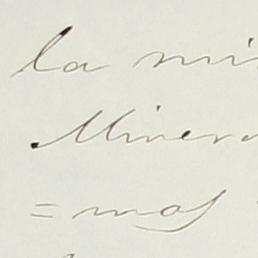 la mi
Minera
=mos